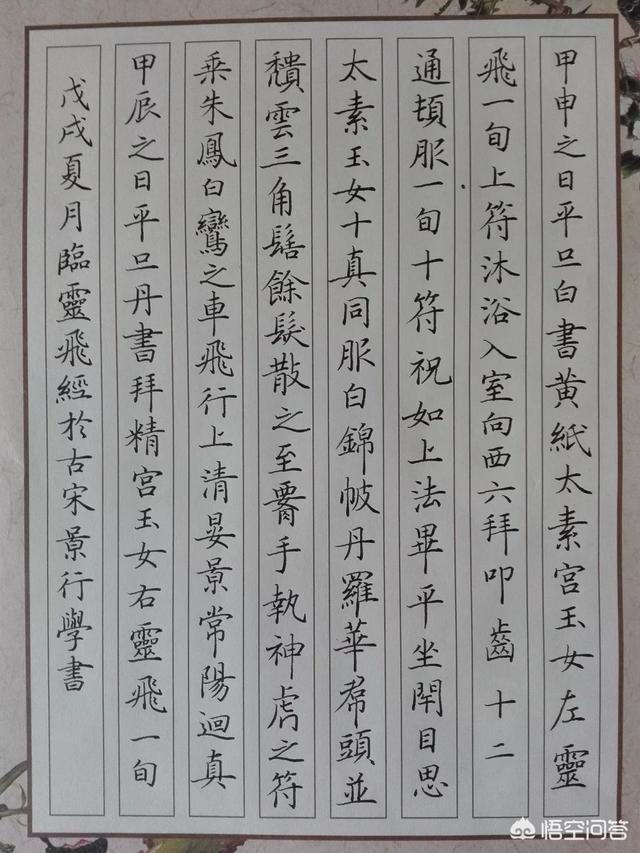 甲申之日平旦白書黄紙太素宮玉女左靈
飛一旬上符沐浴入室向西六拜叩齒十二
通頓服一旬十符祝如上法畢平坐閇目思
太素玉女十真同服白錦帔丹羅華帬頭並
頽雲三角髻餘髮散之至署手執神虎之符
乘朱鳳白鸞之車飛行上清晏景常陽迴真
甲辰之日平旦丹書拜精宮玉女右靈飛一旬
戊戌夏月臨靈飛經於古宋景行學書
悟空问答